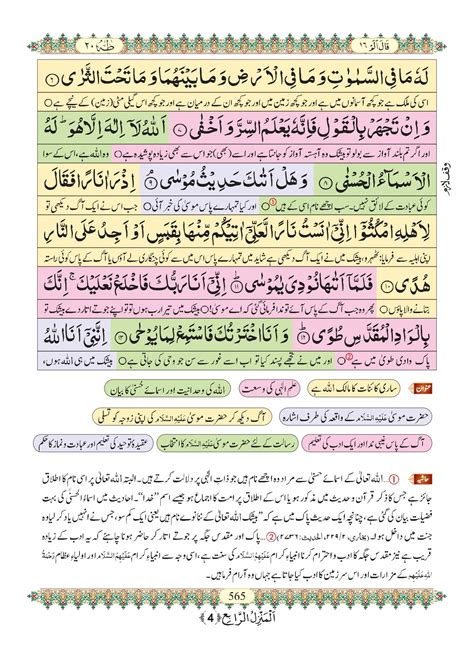 قَالَ اَلَمْ ١٦
طٰهٰ ٢٠
لَهٗ مَا فِی السَّمٰوٰتِ وَمَا فِی الْاَرْضِ وَمَا بَیْنَهُمَا وَمَا تَحْتَ الثَّرٰی ۝٦
اسی کی ملک ہے جو کچھ آسمانوں میں ہے اور جو کچھ زمین میں ہے اور جو کچھ ان کے درمیان ہے اور جو کچھ اس گیلی مٹی (زمین) کے نیچے ہے
وَاِنْ تَجْهَرْ بِالْقَوْلِ فَاِنَّهٗ یَعْلَمُ السِّرَّ وَاَخْفٰی ۝٧ اَللّٰهُ لَاۤ اِلٰهَ اِلَّا هُوَ ؕ لَهُ
اور اگر تم بلند آواز سے بولو تو بیشک وہ آہستہ آواز کو جانتا ہے اور اسے (بھی) جو اس سے بھی زیادہ پوشیدہ ہے وہ اللہ ہے، اس کے سوا
الْاَسْمَآءُ الْحُسْنٰی ۝٨ وَهَلْ اَتٰىكَ حَدِیْثُ مُوْسٰی ۝٩ اِذْ رَاٰ نَارًا فَقَالَ
کوئی عبادت کے لائق نہیں۔ سب اچھے نام اسی کے ہیں ① اور کیا تمہارے پاس موسیٰ کی خبر آئی جب اس نے ایک آگ دیکھی تو
لِاَهْلِهِ امْكُثُوْۤا اِنِّیْۤ اٰنَسْتُ نَارًا لَّعَلِّیْۤ اٰتِیْكُمْ مِّنْهَا بِقَبَسٍ اَوْ اَجِدُ عَلَی النَّارِ
اپنی اہلیہ سے فرمایا: ٹھہرو، بیشک میں نے ایک آگ دیکھی ہے شاید میں تمہارے پاس اس میں سے کوئی چنگاری لے آؤں یا آگ کے پاس کوئی راستہ
هُدًی ۝١٠ فَلَمَّاۤ اَتٰىهَا نُوْدِیَ یٰمُوْسٰی ۝١١ اِنِّیْۤ اَنَا رَبُّكَ فَاخْلَعْ نَعْلَیْكَ ۚ اِنَّكَ
بتانے والا پاؤں پھر وہ جب آگ کے پاس آئے تو ندا فرمائی گئی کہ اے موسیٰ بیشک میں تیرا رب ہوں تو تو اپنے جوتے اتار دے بیشک تو
بِالْوَادِ الْمُقَدَّسِ طُوًی ۝١٢ وَاَنَا اخْتَرْتُكَ فَاسْتَمِعْ لِمَا یُوْحٰی ۝١٣ اِنَّنِیْۤ اَنَا اللّٰهُ
پاک وادی طویٰ میں ہے ② اور میں نے تجھے پسند کیا تو اب اسے غور سے سن جو وحی کی جاتی ہے بیشک میں ہی اللہ ہوں،
عنوان
ساری کائنات کا مالک اللہ ہے
علم الٰہی کی وسعت
اللہ کی وحدانیت اور اسمائے حسنیٰ کا بیان
حضرت موسیٰ عَلَیْہِ السَّلَام کے واقعہ کی طرف اشارہ
آگ دیکھ کر حضرت موسیٰ عَلَیْہِ السَّلَام کی اپنی زوجہ کو تسلی
آگ کے پاس غیبی ندا اور ایک ادب کی تعلیم
رسالت کے لئے حضرت موسیٰ عَلَیْہِ السَّلَام کا انتخاب
عقیدۂ توحید کی تعلیم اور عبادت و نماز کا حکم
حاشیہ ①… اللہ تعالیٰ کے اسمائے حسنیٰ سے مراد وہ اچھے نام ہیں جو ذاتِ الٰہی پر دلالت کرتے ہیں۔ البتہ اللہ تعالیٰ پر اسی نام کا اطلاق
جائز ہے جس کا ذکر قرآن و حدیث میں مذکور ہو یا اس کے اطلاق پر امت کا اجماع ہو جیسے اسم "خدا"۔ احادیث میں اسماءُ الحسنیٰ کی بہت
فضیلت بیان کی گئی ہے، چنانچہ ایک حدیث پاک میں ہے کہ "بیشک اللہ تعالیٰ کے ننانوے نام ہیں یعنی ایک کم سو، جس نے انہیں یاد کر لیا وہ
جنت میں داخل ہو گا۔ (بخاری، ٢/٢٢٩، الحدیث: ٢٧٣٦) ②… پاک اور مقدس جگہ پر جوتے اتار کر حاضر ہونا چاہئے کہ یہ ادب کے زیادہ
قریب ہے نیز مقدس جگہ کا ادب و احترام کرنا انبیاءِ کرام عَلَیْہِمُ السَّلَام کی سنت ہے، اسی وجہ سے انبیاءِ کرام عَلَیْہِمُ السَّلَام اور اولیاءِ عظام رَحْمَۃُ
اللہِ عَلَیْہِمْ کے مزارات اور اس سرزمین کا ادب کیا جاتا ہے جہاں وہ آرام فرما ہیں۔
565
اَلْمَنْزِلُ الرَّابِع ﴿4﴾